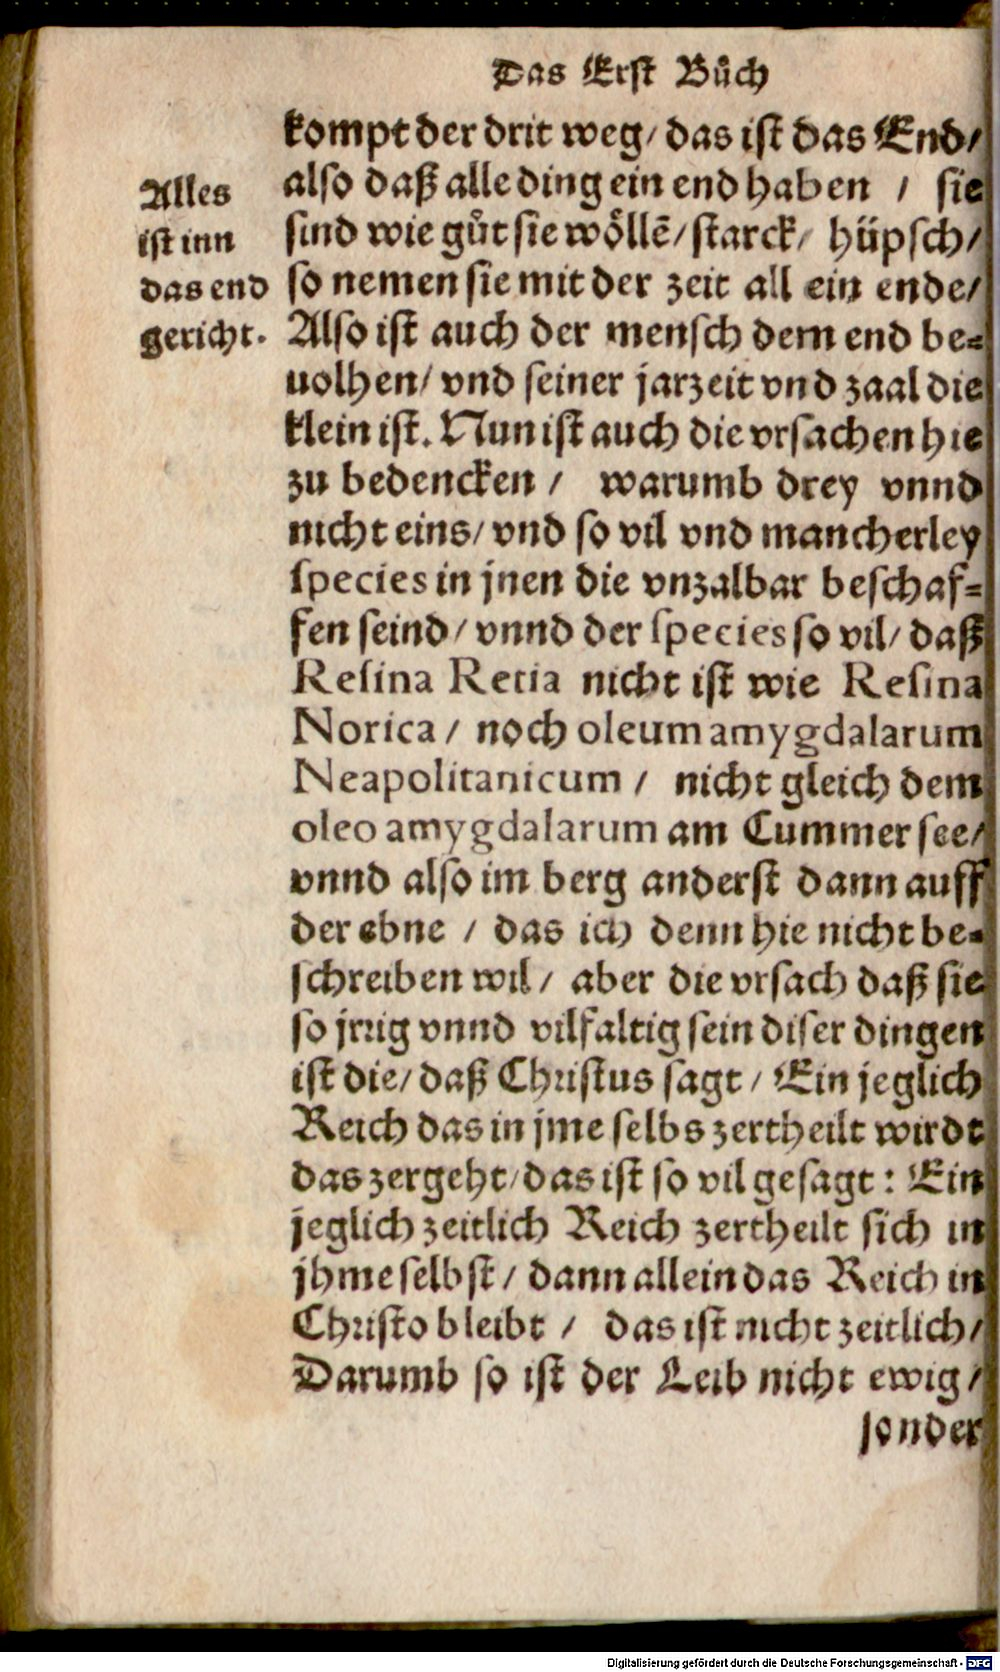 Das Erst Bůch
kompt der drit weg/ das ist das End/
also daß alle ding ein end haben / sie
sind wie gůt sie wöllē/ starck/ hüpsch/
so nemen sie mit der zeit all ein ende/
Also ist auch der mensch dem end be=
uolhen/ vnd seiner jarzeit vnd zaal die
klein ist. Nun ist auch die vrsachen hie
zu bedencken / warumb drey vnnd
nicht eins/ vnd so vil vnd mancherley
species in jnen die vnzalbar beschaf=
fen seind/ vnnd der species so vil/ daß
Resina Retia nicht ist wie Resina
Norica / noch oleum amygdalarum
Neapolitanicum / nicht gleich dem
oleo amygdalarum am Cummer see/
vnnd also im berg anderst dann auff
der ebne / das ich denn hie nicht be=
schreiben wil/ aber die vrsach daß sie
so jrrig vnnd vilfaltig sein diser dingen
ist die/ daß Christus sagt / Ein jeglich
Reich das in jme selbs zertheilt wirdt
das zergeht/ das ist so vil gesagt: Ein
jeglich zeitlich Reich zertheilt sich in
jhme selbst/ dann allein das Reich in
Christo bleibt / das ist nicht zeitlich/
Darumb so ist der Leib nicht ewig/
sonder
Alles
ist inn
das end
gericht.
Digitalisierung gefördert durch die Deutsche Forschungsgemeinschaft - DFG